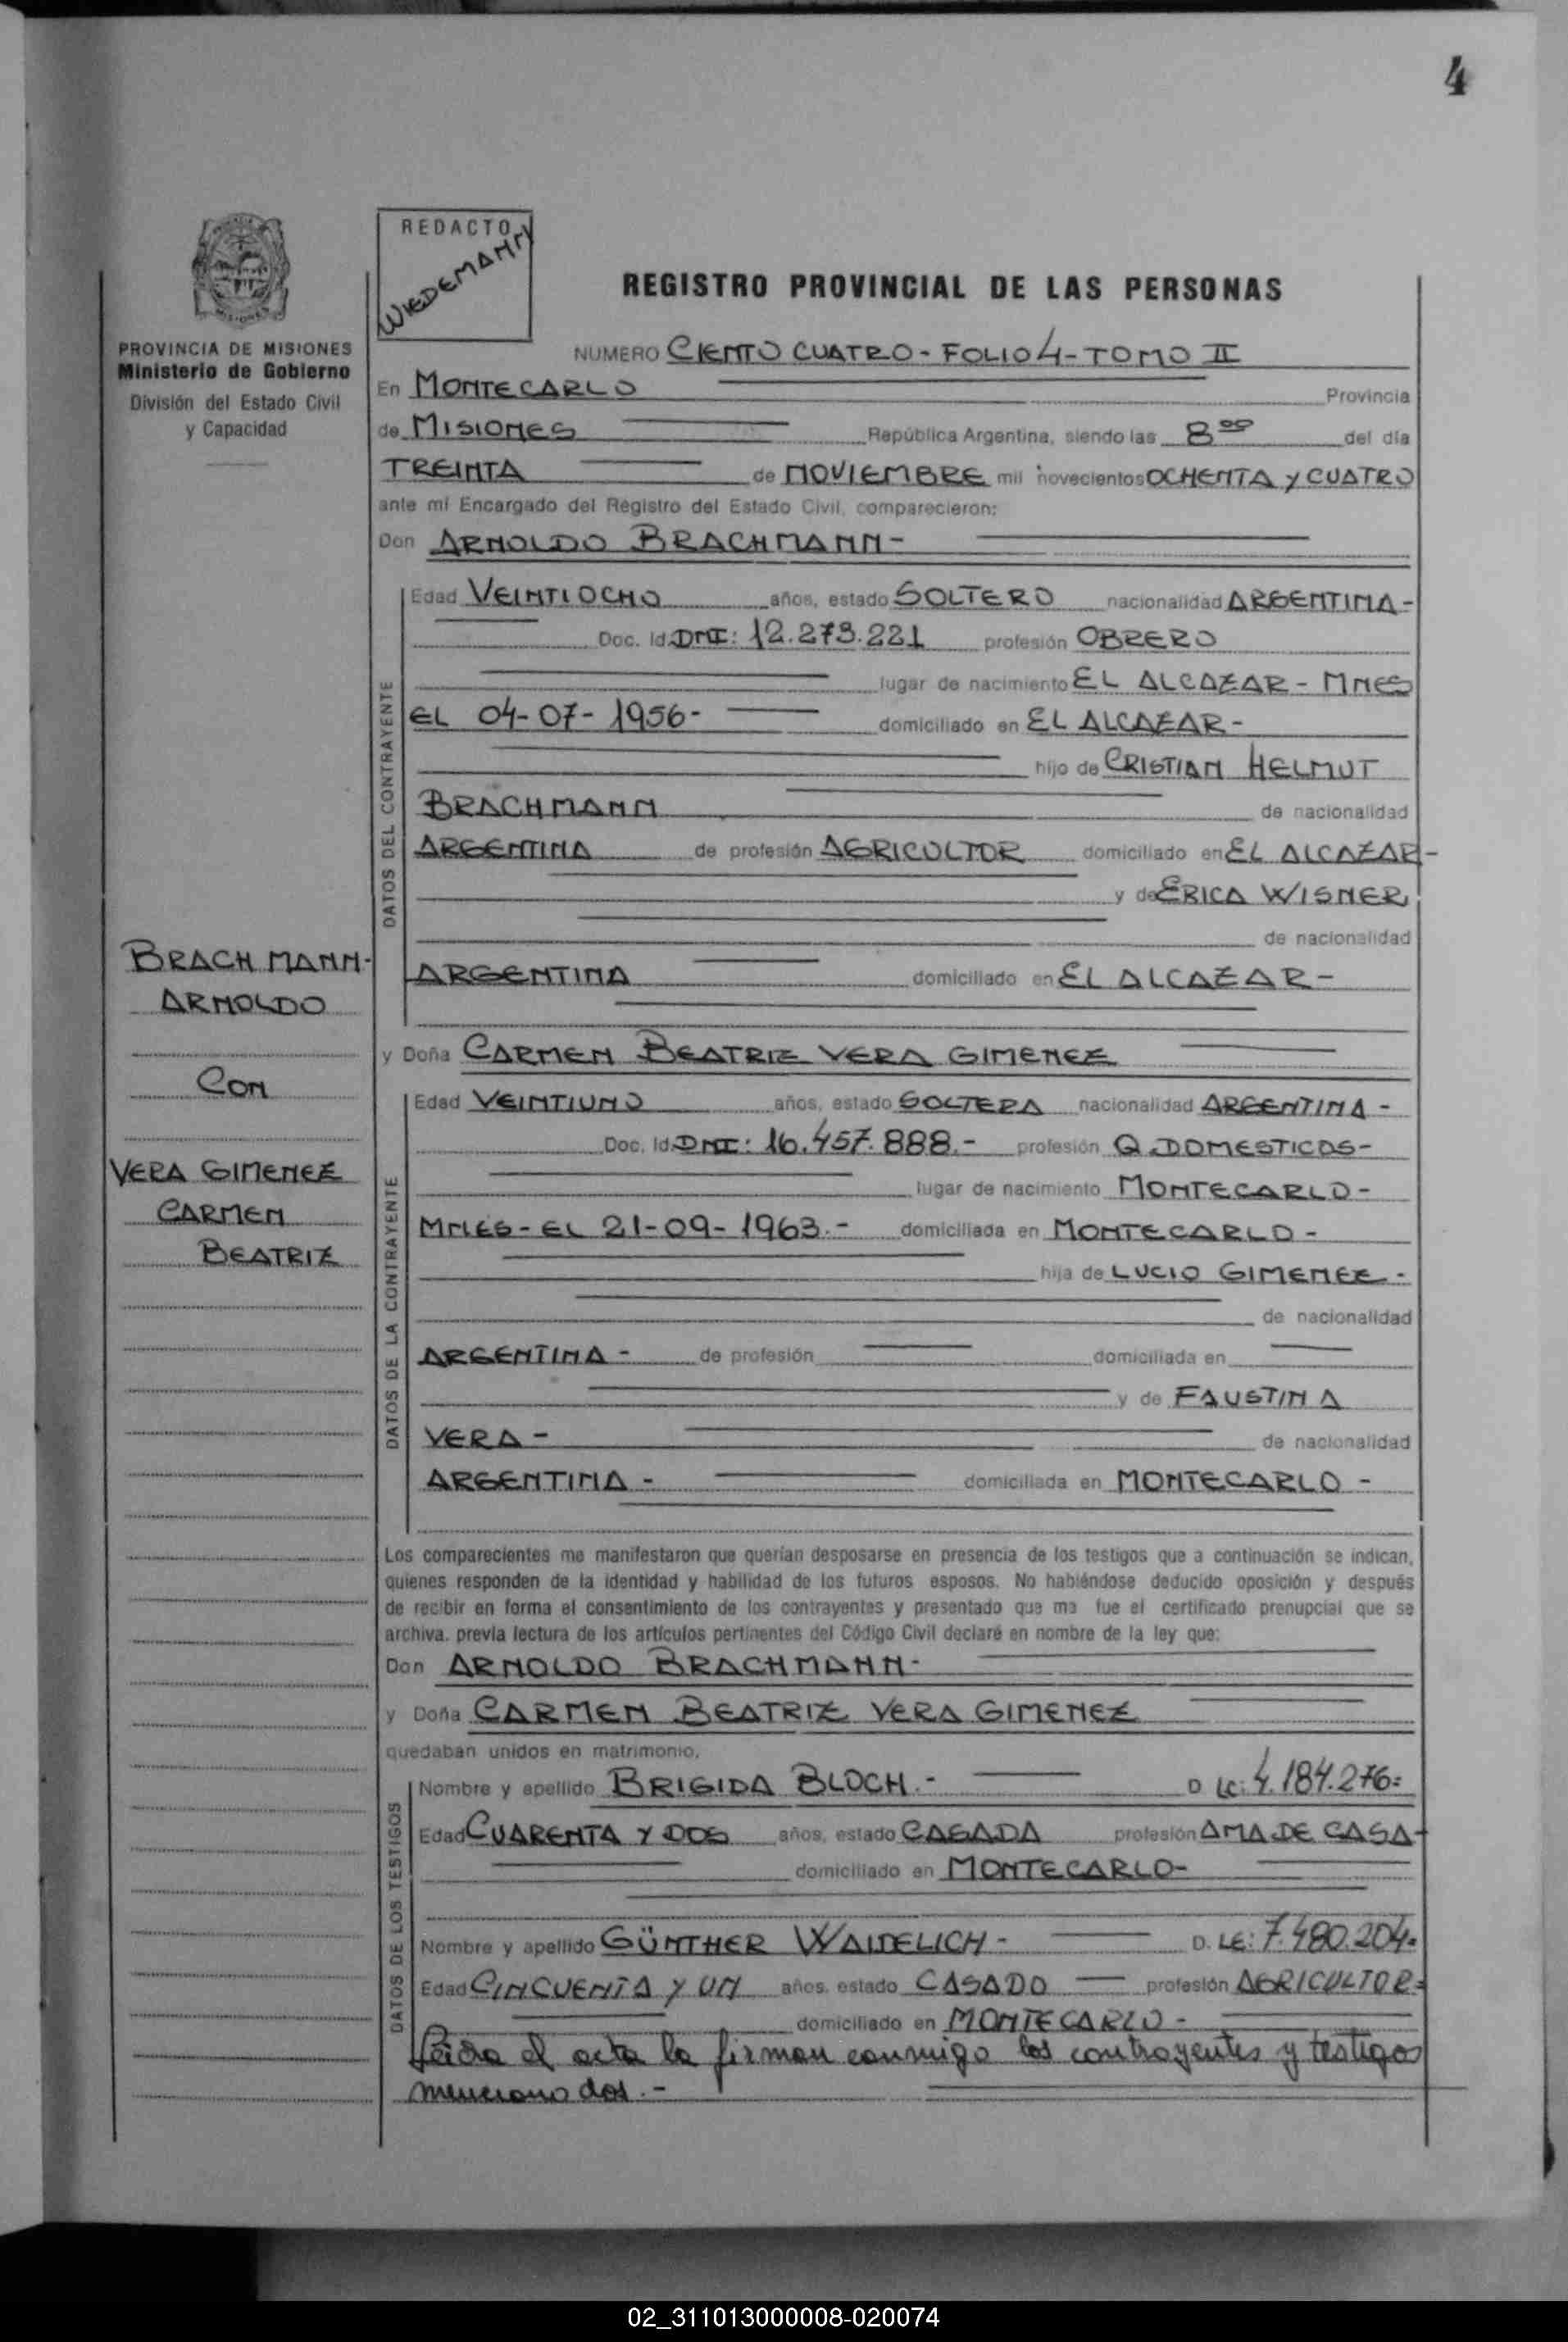 4
REDACTO
WIEDEMANN
REGISTRO PROVINCIAL DE LAS PERSONAS
PROVINCIA DE MISIONES
Ministerio de Gobierno
División del Estado Civil
y Capacidad
NUMERO CIENTO CUATRO - FOLIO 4 - TOMO II
En MONTECARLO Provincia
de MISIONES República Argentina, siendo las 8 00 del día
TREINTA de NOVIEMBRE mil novecientos OCHENTA y CUATRO
ante mí Encargado del Registro del Estado Civil, comparecieron:
Don ARNOLDO BRACHMANN-
DATOS DEL CONTRAYENTE
Edad VEINTIOCHO años, estado SOLTERO nacionalidad ARGENTINA-
Doc. Id. DNI: 12.273.221 profesión OBRERO
lugar de nacimiento EL ALCAZAR - MNES
EL 04-07-1956- domiciliado en EL ALCAZAR-
hijo de CRISTIAN HELMUT
BRACHMANN de nacionalidad
ARGENTINA de profesión AGRICULTOR domiciliado en EL ALCAZAR-
y de ERICA WISNER
de nacionalidad
ARGENTINA domiciliado en EL ALCAZAR-
BRACHMANN-
ARNOLDO
CON
VERA GIMENEZ
CARMEN
BEATRIZ
y Doña CARMEN BEATRIZ VERA GIMENEZ
DATOS DE LA CONTRAYENTE
Edad VEINTIUNO años, estado SOLTERA nacionalidad ARGENTINA-
Doc. Id. DNI: 16.457.888.- profesión Q.DOMESTICOS-
lugar de nacimiento MONTECARLO-
MNES- EL 21-09-1963.- domiciliada en MONTECARLO-
hija de LUCIO GIMENEZ.-
de nacionalidad
ARGENTINA- de profesión domiciliada en
y de FAUSTINA
VERA- de nacionalidad
ARGENTINA- domiciliada en MONTECARLO-
Los comparecientes me manifestaron que querían desposarse en presencia de los testigos que a continuación se indican,
quienes responden de la identidad y habilidad de los futuros esposos. No habiéndose deducido oposición y después
de recibir en forma el consentimiento de los contrayentes y presentado que me fue el certificado prenupcial que se
archiva. previa lectura de los artículos pertinentes del Código Civil declaré en nombre de la ley que:
Don ARNOLDO BRACHMANN-
y Doña CARMEN BEATRIZ VERA GIMENEZ
quedaban unidos en matrimonio.
DATOS DE LOS TESTIGOS
Nombre y apellido BRIGIDA BLOCH.- D LC: 4.184.276=
Edad CUARENTA Y DOS años, estado CASADA profesión AMA DE CASA-
domiciliado en MONTECARLO-
Nombre y apellido GÜNTHER WAIDELICH- D. LE: 7.480.204-
Edad CINCUENTA Y UN años, estado CASADO profesión AGRICULTOR=
domiciliado en MONTECARLO-
Leida el acta la firman conmigo los contrayentes y testigos
mencionados.-
02_311013000008-020074